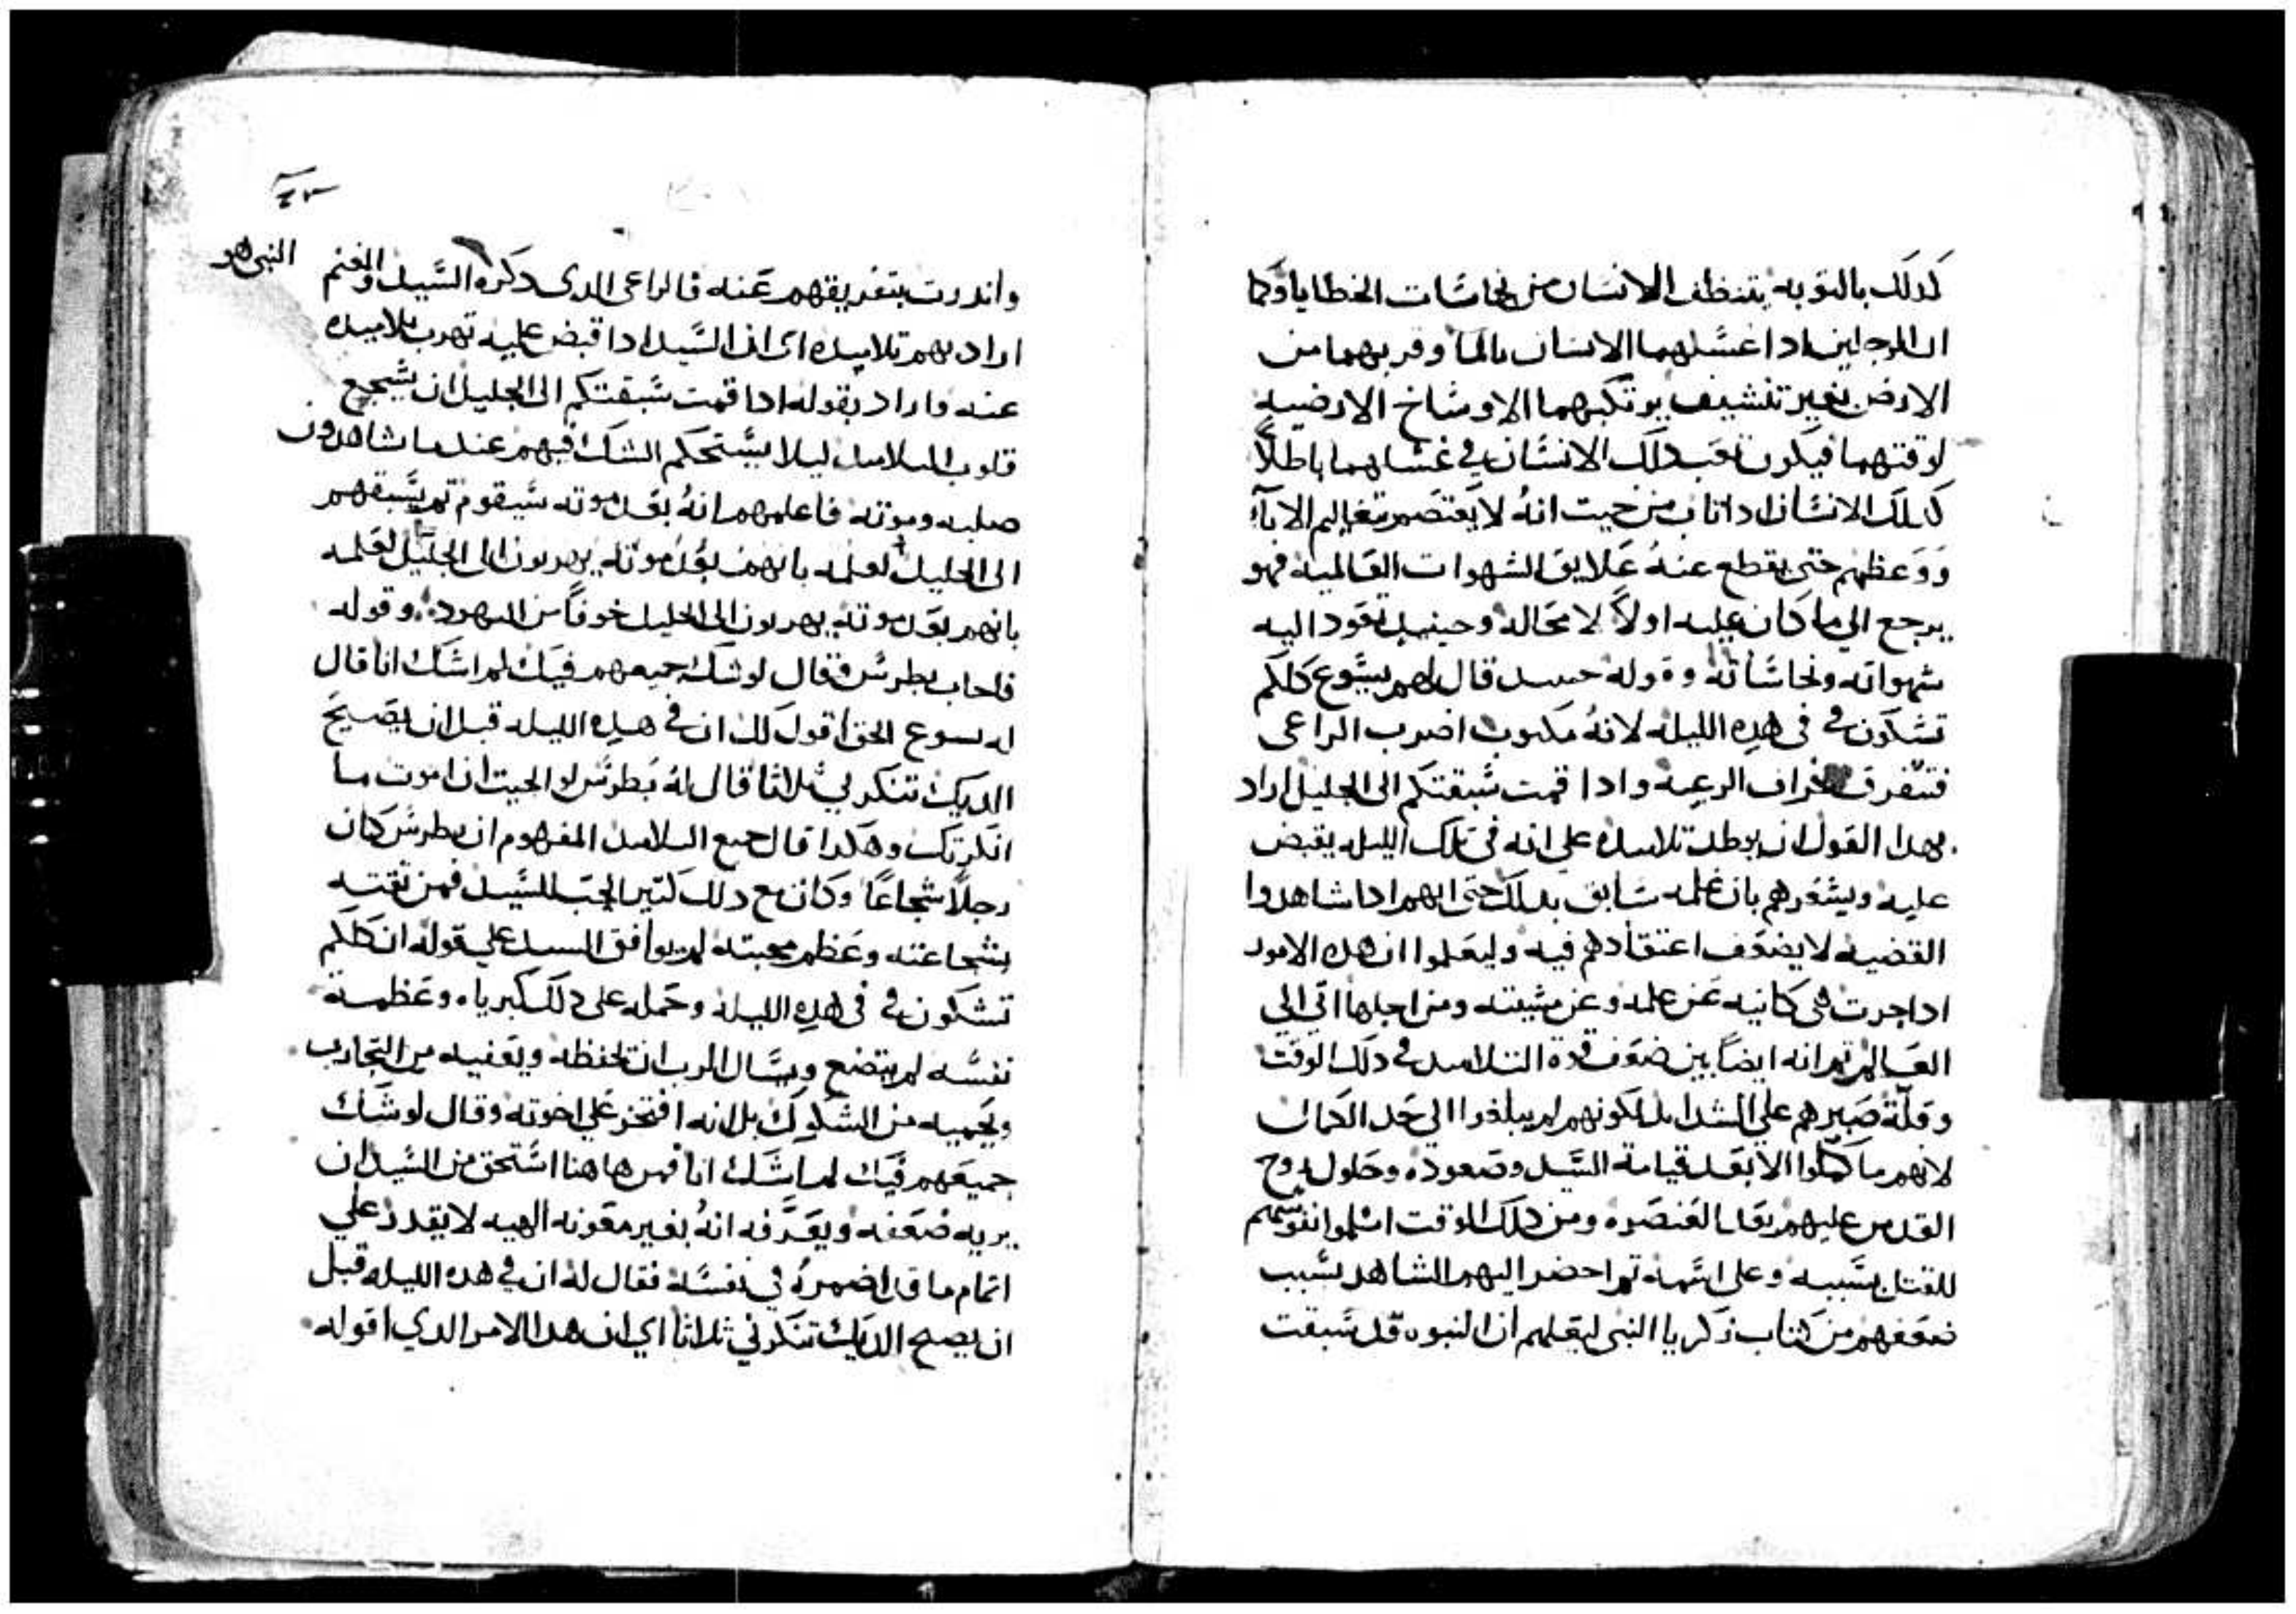 كدلك بالتوبه يتنظف الانسان من نجاسات الخطايا وكما
ان الرجلين ادا غسلهما الانسان بالما وقربهما من
الارض بغير تنشيف يرتكبهما الاوساخ الارضيه
لوقتهما فيكون تعب دلك الانسان في غسلهما باطلاً
كدلك الانسان ادا تاب من حيت انهُ لا يعتصم بتعاليم الابآء
ووعظهم حتى يقطع عنهُ علايق الشهوات العالميه فهو
يرجع الي ما كان عليه اولاً لا محاله وحينيد تعود اليه
شهواته ونجاساته وقوله حينيد قال لهم يسوع كلكم
تشكون في في هده الليله لانهُ مكتوب اضرب الراعى
فتتفرق خراف الرعيه وادا قمت سبقتكم الى الجليل اراد
بهدا القول ان يوطد تلاميده علي انه في تلك الليله يقبض
عليه ويشعرهم بان علمه سابق بدلك حتى انهم ادا شاهدوا
القضيه لا يضعف اعتقادهم فيه وليعلموا ان هده الامور
ادا جرت هى كانيه عن علمه وعن مشيته ومن اجلها اتى الي
العالم تم انه ايضاً بين ضعف قوة التلاميد في دلك الوقت
وقلة صبرهم علي الشدايد لكونهم لم يبلغوا الي حد الكمال
لانهم ما كملوا الا بعد قيامة السيد وصعوده وحلول روح
القدس عليهم بعد العنصره ومن دلك الوقت اسلموا نفوسهم
للقتل بسببه وعلى اسمه تم احضر اليهم الشاهد بسبب
ضعفهم من كتاب زكريا النبى ليعلمهم ان النبوه قد سبقت
واندرت بتفريقهم عنه فالراعى الدى دكره النبى هو السيد والغنم
اراد بهم تلاميده اى ان السيد ادا قبض عليه تهرب تلاميده
عنه واراد بقوله ادا قمت سبقتكم الى الجليل ان يشجع
قلوب التلاميد ليلا يستحكم الشك فيهم عندما شاهدون
صلبه وموته فاعلمهم انهُ بعد موته سيقوم تم يسبقهم
الى الجليل لعلمه بانهم بعد موته يهربون الى الجليل لعلمه
بانهم بعد موته يهربون الى الجليل خوفاً من اليهود وقوله
فاجاب بطرس وقال لو شك جميعهم فيك لم اشك انا قال
له يسوع الحق اقول لك ان في هده الليله قبل ان يصيح
الديك تنكرني ثلاثا قال لهُ بطرس لو الجيت ان اموت ما
انكرتك وهكدا قال جميع التلاميد المفهوم ان بطرس كان
رجلاً شجاعاً وكان مع دلك كتير الحب للسيد فمن ثقته
بشجاعته وعظم محبته لم يوافق السيد علي قوله ان كلكم
تشكون في في هده الليله وحمله على دلك كبرياه وعظمة
نفسه لم يتضع ويسال الرب ان يحفظه ويعفيه من التجارب
ويحميه من الشكوك بل انه افتخر علي اخوته وقال لو شك
جميعهم فيك لم اشك انا فمن هاهنا استحق من السيد ان
يريه ضعفه ويعرفه انهُ بغير معونه الهيه لا يقدر علي
اتمام ما قد اضمرهُ في نفسه فقال له ان في هده الليله قبل
ان يصيح الديك تنكرني ثلاثا اي ان هدا الامر الدي اقوله